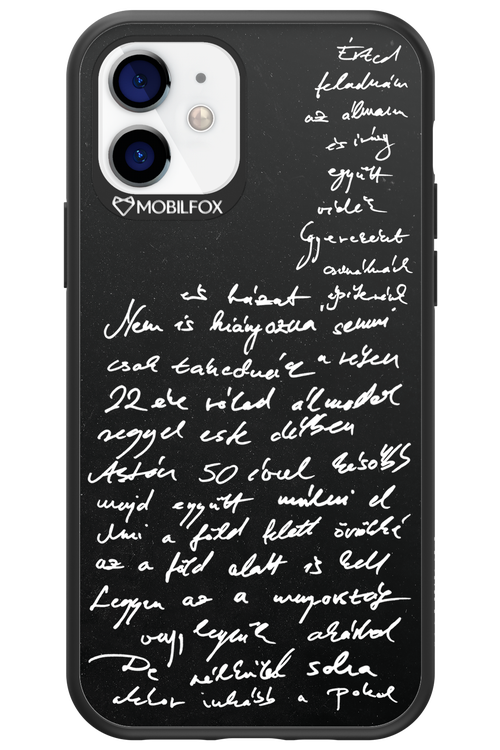 MOBILFOX
Érted
feladnám
az álmaim
és irány
együtt
vidék
Gyerekeket
csinálnánk
és házat építenénk
Nem is hiányozna semmi
csak takednák a réten
22 éve rólad álmodok
reggel este délben
Aztán 50 évvel később
majd együtt múlni el
Ami a föld felett örökké
az a föld alatt is kell
Legyen az a mennyország
vagy legyünk akárhol
De nélküled soha
akkor inkább a pokol